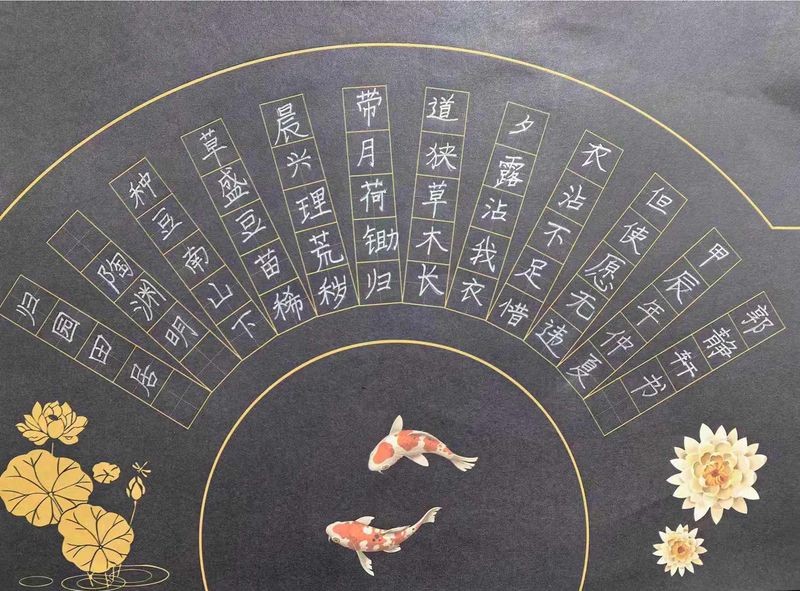 归园田居
陶渊明
种豆南山下
草盛豆苗稀
晨兴理荒秽
带月荷锄归
道狭草木长
夕露沾我衣
衣沾不足惜
但使愿无违
甲辰年仲夏
郭静轩书